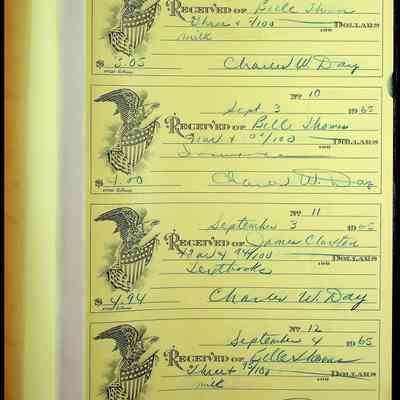 RECEIVED OF Belle Thomas
Three + 5/100 DOLLARS
100
milk
$3.05 Charles W. Day
No 10
Sept. 3 1965
RECEIVED OF Belle Thomas
00/100 DOLLARS
100
Insurance
$1.00 Charles W. Day
No 11
September 3 1965
RECEIVED OF James
Four + 94/100 DOLLARS
100
Textbooks
$4.94 Charles W. Day
No 12
September 4 1965
RECEIVED OF Belle Thomas
Three + /100 DOLLARS
100
milk